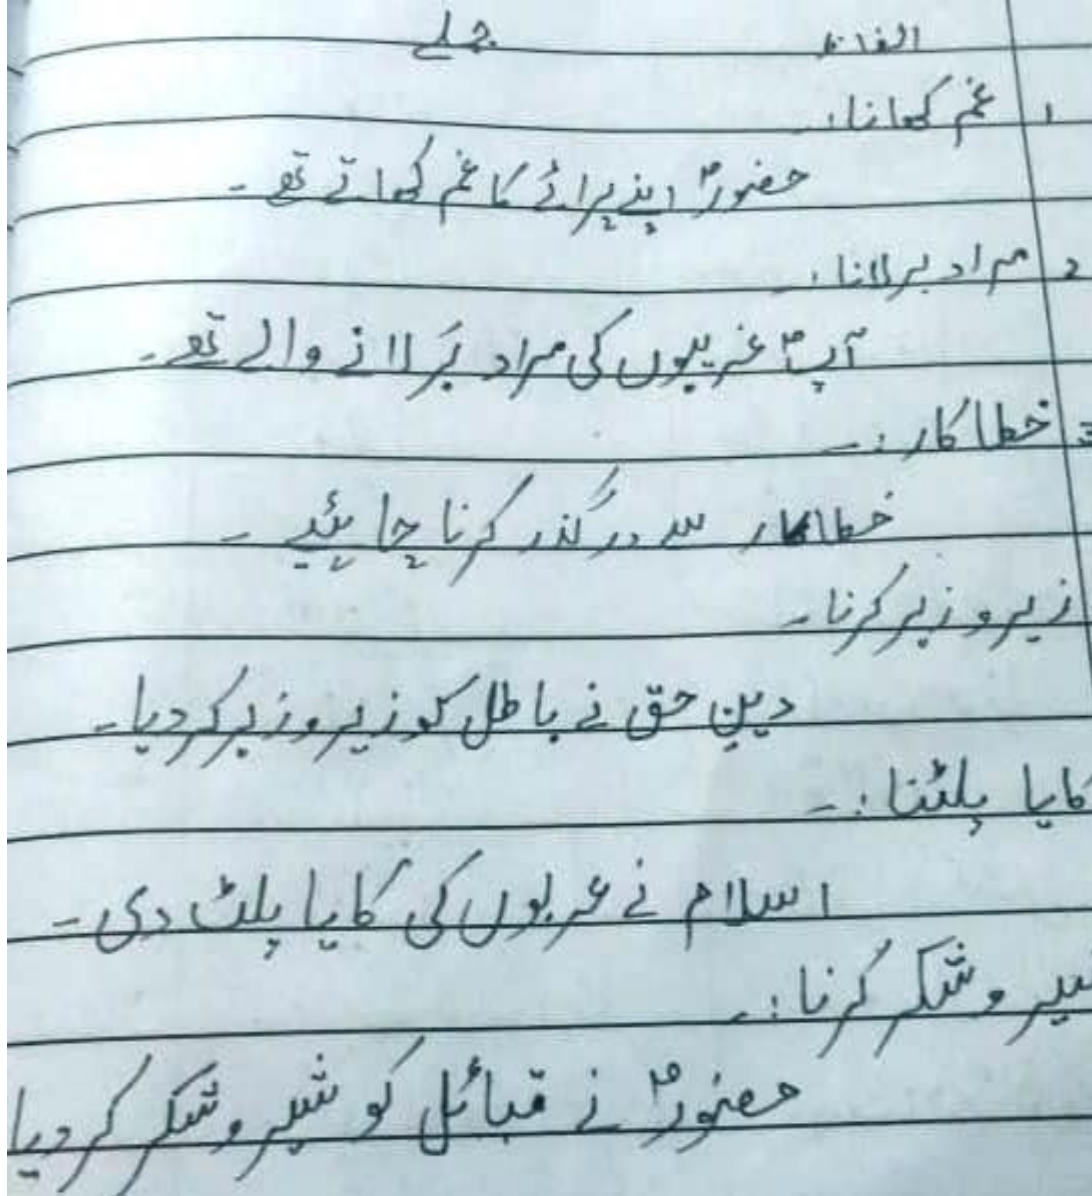 الفاظ جملے
۱ غم کھانا:
حضورؐ اپنے پرائے کا غم کھاتے تھے۔
۲ مراد بر لانا:
آپؐ غریبوں کی مراد بَر لانے والے تھے۔
۳ خطا کار:۔
خطا کار سے درگُذر کرنا چاہئیے۔
زیر و زبر کرنا۔
دینِ حق نے باطل کو زیر و زبر کر دیا۔
کایا پلٹنا:۔
اسلام نے عربوں کی کایا پلٹ دی۔
شیر و شکر کرنا:۔
حضورؐ نے قبائل کو شیر و شکر کر دیا